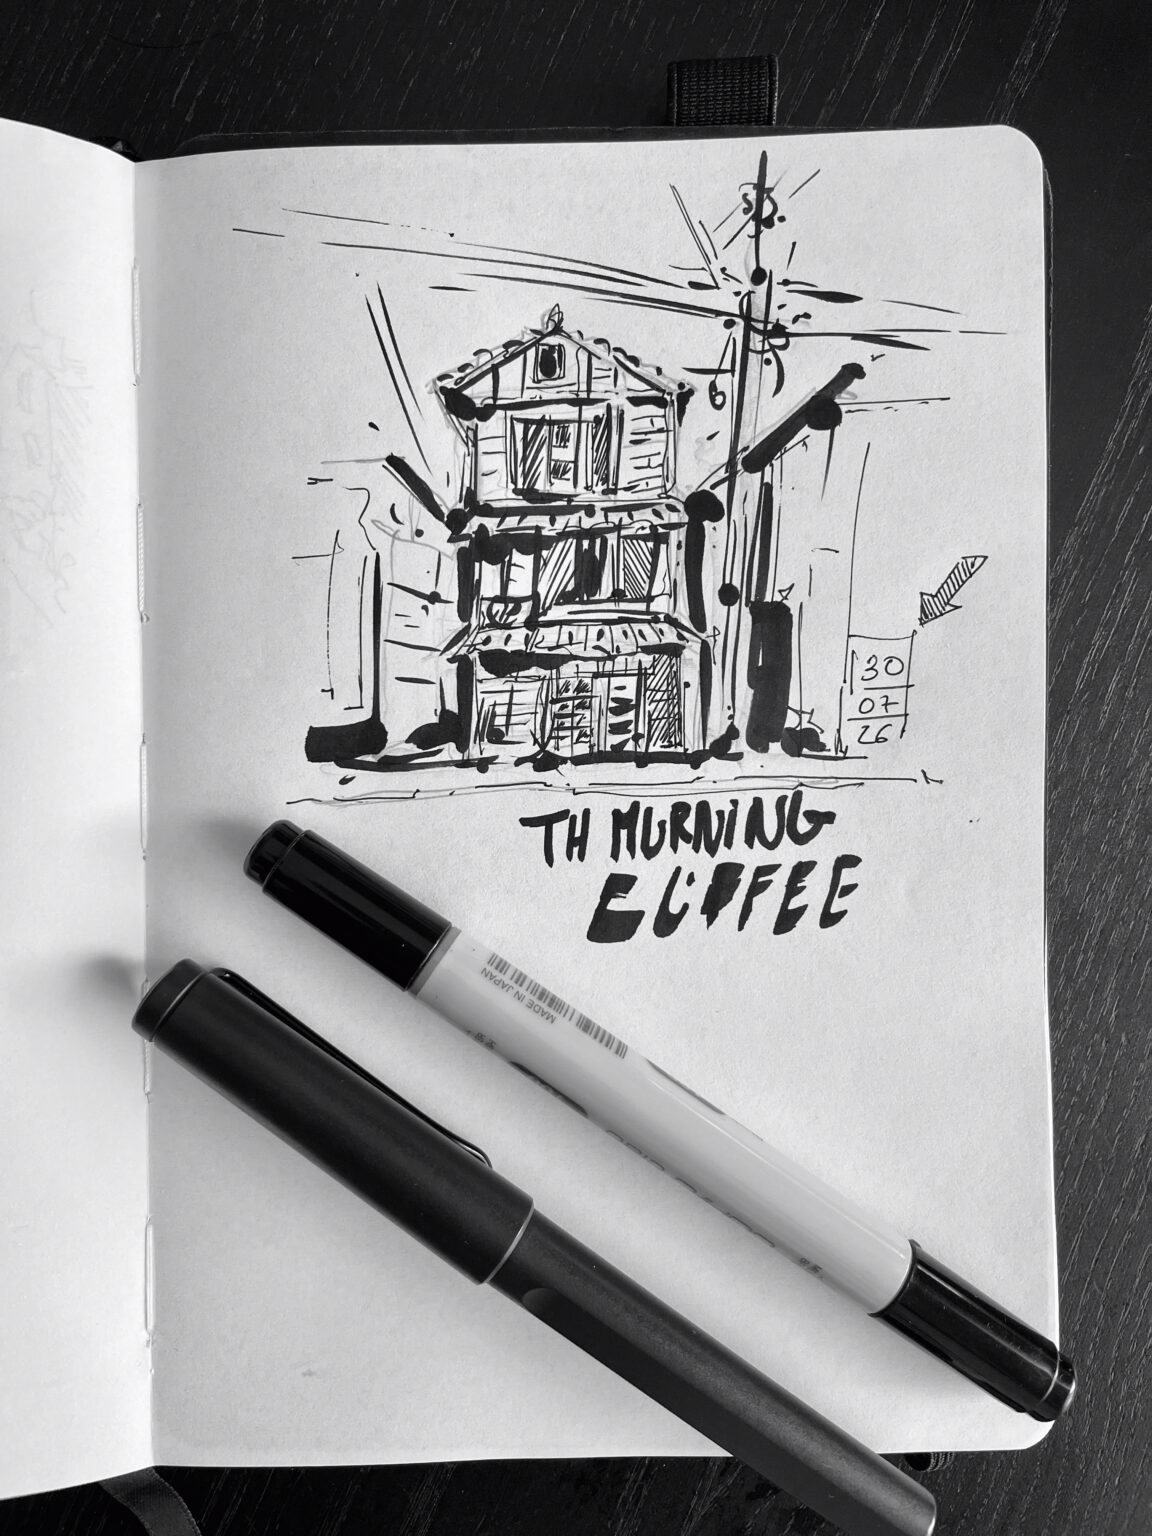 30
07
26
TH MURNING
COFFEE
MADE IN JAPAN